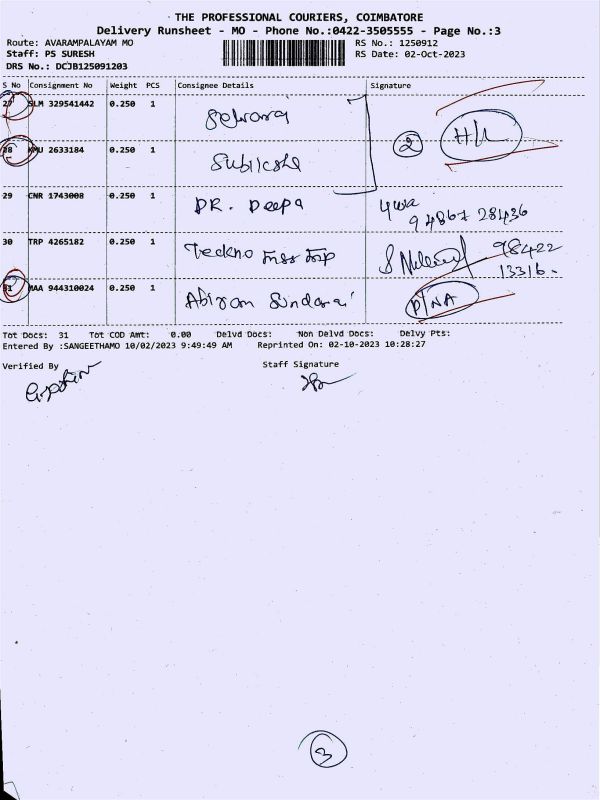 THE PROFESSIONAL COURIERS, COIMBATORE
Delivery Runsheet - MO - Phone No.:0422-3505555 - Page No.:3
Route: AVARAMPALAYAM MO RS No.: 1250912
Staff: PS SURESH RS Date: 02-Oct-2023
DRS No.: DCJB125091203
S No Consignment No Weight PCS Consignee Details Signature
27 SLM 329541442 0.250 1
28 KMU 2633184 0.250 1 2 H/L
29 CNR 1743008 0.250 1 DR. Deepa
94867 28436
30 TRP 4265182 0.250 1 Teckno 98422
13316.
31 MAA 944310024 0.250 1 Abiram Sundarai D/NA
Tot Docs: 31 Tot COD Amt: 0.00 Delvd Docs: Non Delvd Docs: Delvy Pts:
Entered By :SANGEETHAMO 10/02/2023 9:49:49 AM Reprinted On: 02-10-2023 10:28:27
Verified By Staff Signature
3